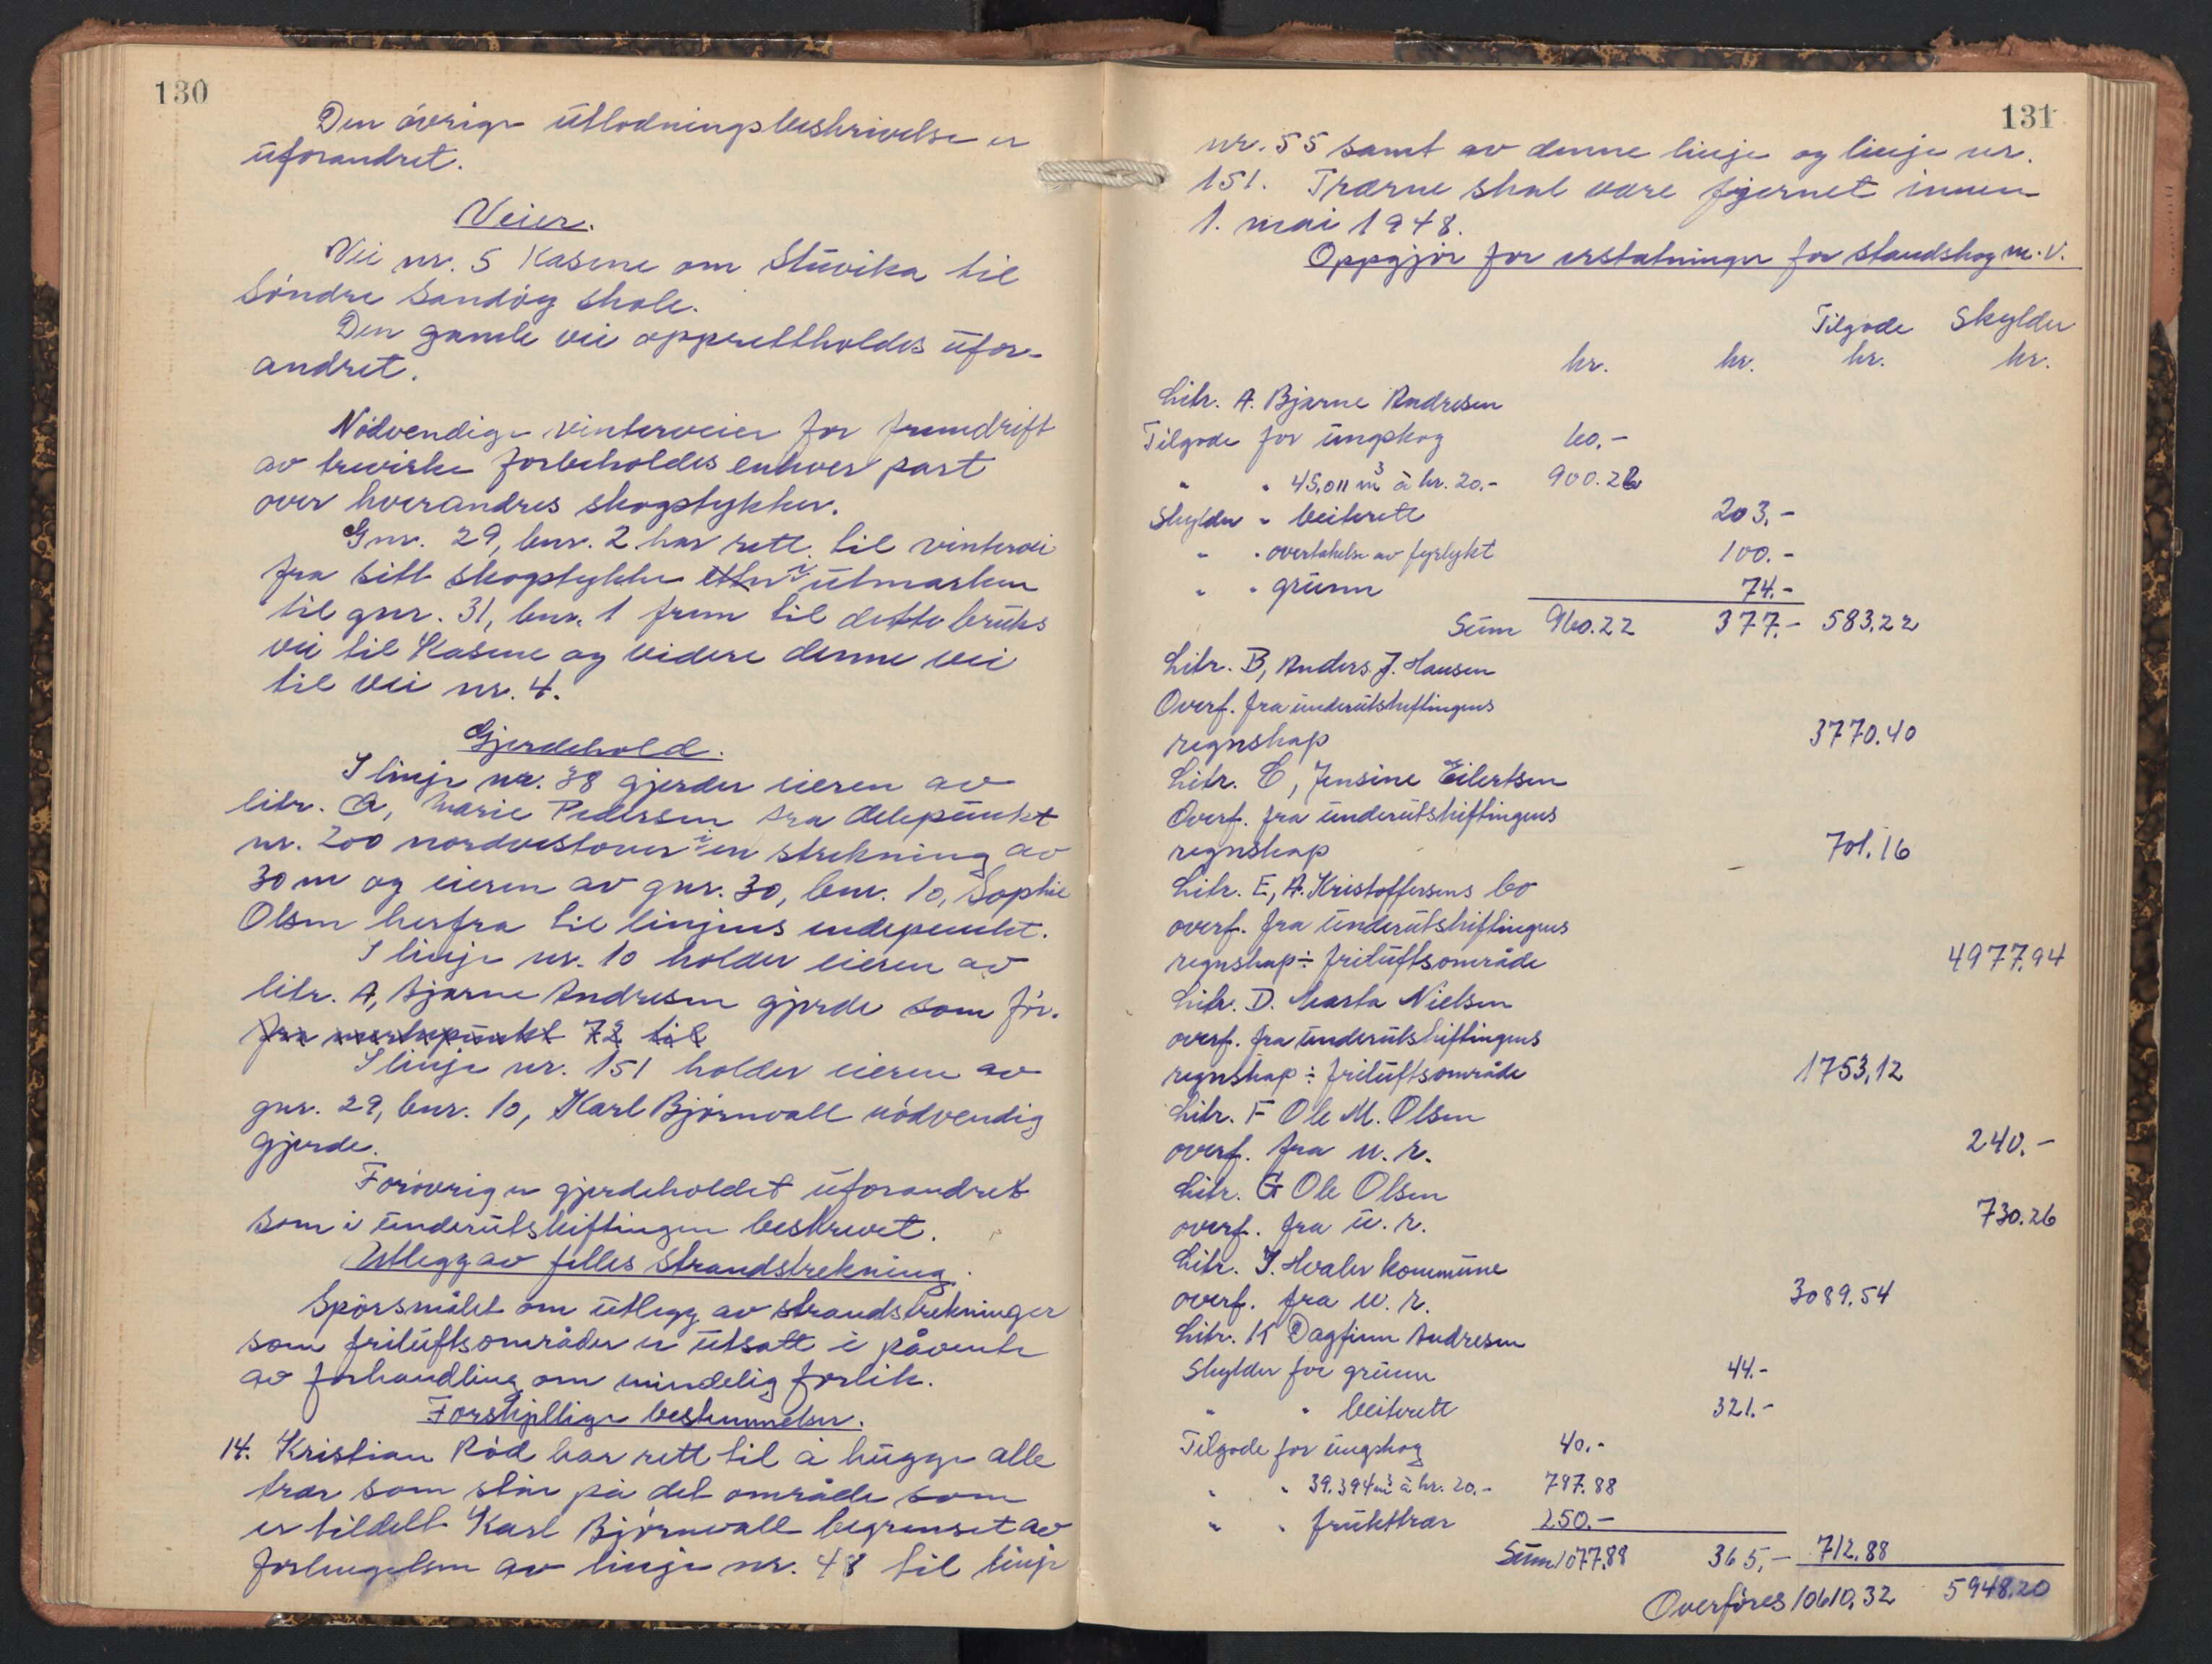 130
Den övrige ütlodningsbeskrivelse er
üforandret.
Veier.
Vei nr. 5 Kasene om Stüvika til
Söndre Sandöy skole.
Den gamle vei opprettholdes üfor-
andret.
Nödvendige vinterveier for fremdrift
av trevirke forbeholdes enhver part
over hverandres skogstykker.
Gnr. 29, bnr. 2 har rett til vintervei
fra sitt skogstykke i ütmarken
til gnr. 31, bnr. 1 frem til dette brüks
vei til Kasene og videre denne vei
til vei nr. 4.
Gjerdehold.
I linje nr. 38 gjerder eieren av
litr. Q, Marie Pedersen fra delepünkt
nr. 200 nordvestover i en strekning av
30 m og eieren av gnr. 30, bnr. 10, Sophie
Olsen herfra til linjens endepunkt.
I linje nr. 10 holder eieren av
litr. A, Bjarne Andresen gjerde som för.
fra merkepünkt 72 til
I linje nr. 151 holder eieren av
gnr. 29, bnr. 10, Karl Björnvall nödvendig
gjerde.
Forövrig er gjerdeholdet üforandret
som i ünderütskiftingen beskrevet.
Utlegg av felles strandstrekning.
Spörsmålet om ütlegg av strandstrekninger
som frilüftsområder er ütsatt i påvente
av forhandling om mindelig forlik.
Forskjellige bestemmelser.
14. Kristian Röd har rett til å hügge alle
trær som står på det område som
er tildelt Karl Björnvall begrenset av
forlengelsen av linje nr. 48 til linje
131
nr. 55 samt av denne linje og linje nr.
151. Trærne skal være fjernet innen
1. mai 1948.
Oppgjör for erstatninger for standskog m.v.
Tilgode Skylder
kr. kr. kr. kr.
Litr. A. Bjarne Andresen
Tilgode for üngskog 60.-
" " 45,011 m³ à kr. 20.- 900.22
Skylder " beiterett 203.-
" " overtakelse av fyrlykt 100.-
" " grünn 74.-
Süm 960.22 377.- 583.22
Litr. B, Anders J. Hansen
Overf. fra ünderütskiftingens
regnskap 3770.40
Litr. C, Jensine Eilertsen
Overf. fra ünderütskiftingens
regnskap 701.16
Litr. E, A. Kristoffersens bo
overf. fra ünderütskiftingens
regnskap ÷ frilüftsområde 4977.94
Litr. D. Marta Nielsen
overf. fra ünderütskiftingens
regnskap ÷ frilüftsområde 1753,12
Litr. F Ole M. Olsen
overf. fra u. r. 240.-
Litr. G Ole Olsen
overf. fra ü. r. 730.26
Litr. J. Hvaler kommüne
overf. fra u. r. 3089.54
Litr. K Dagfinn Andresen
Skylder for grünn 44.-
" " beiterett 321.-
Tilgode for üngskog 40.-
" " 39.394 m³ à kr. 20.- 787.88
" " frükttrær 250.-
Süm 1077.88 365,- 712.88
Overföres 10610.32 5948.20